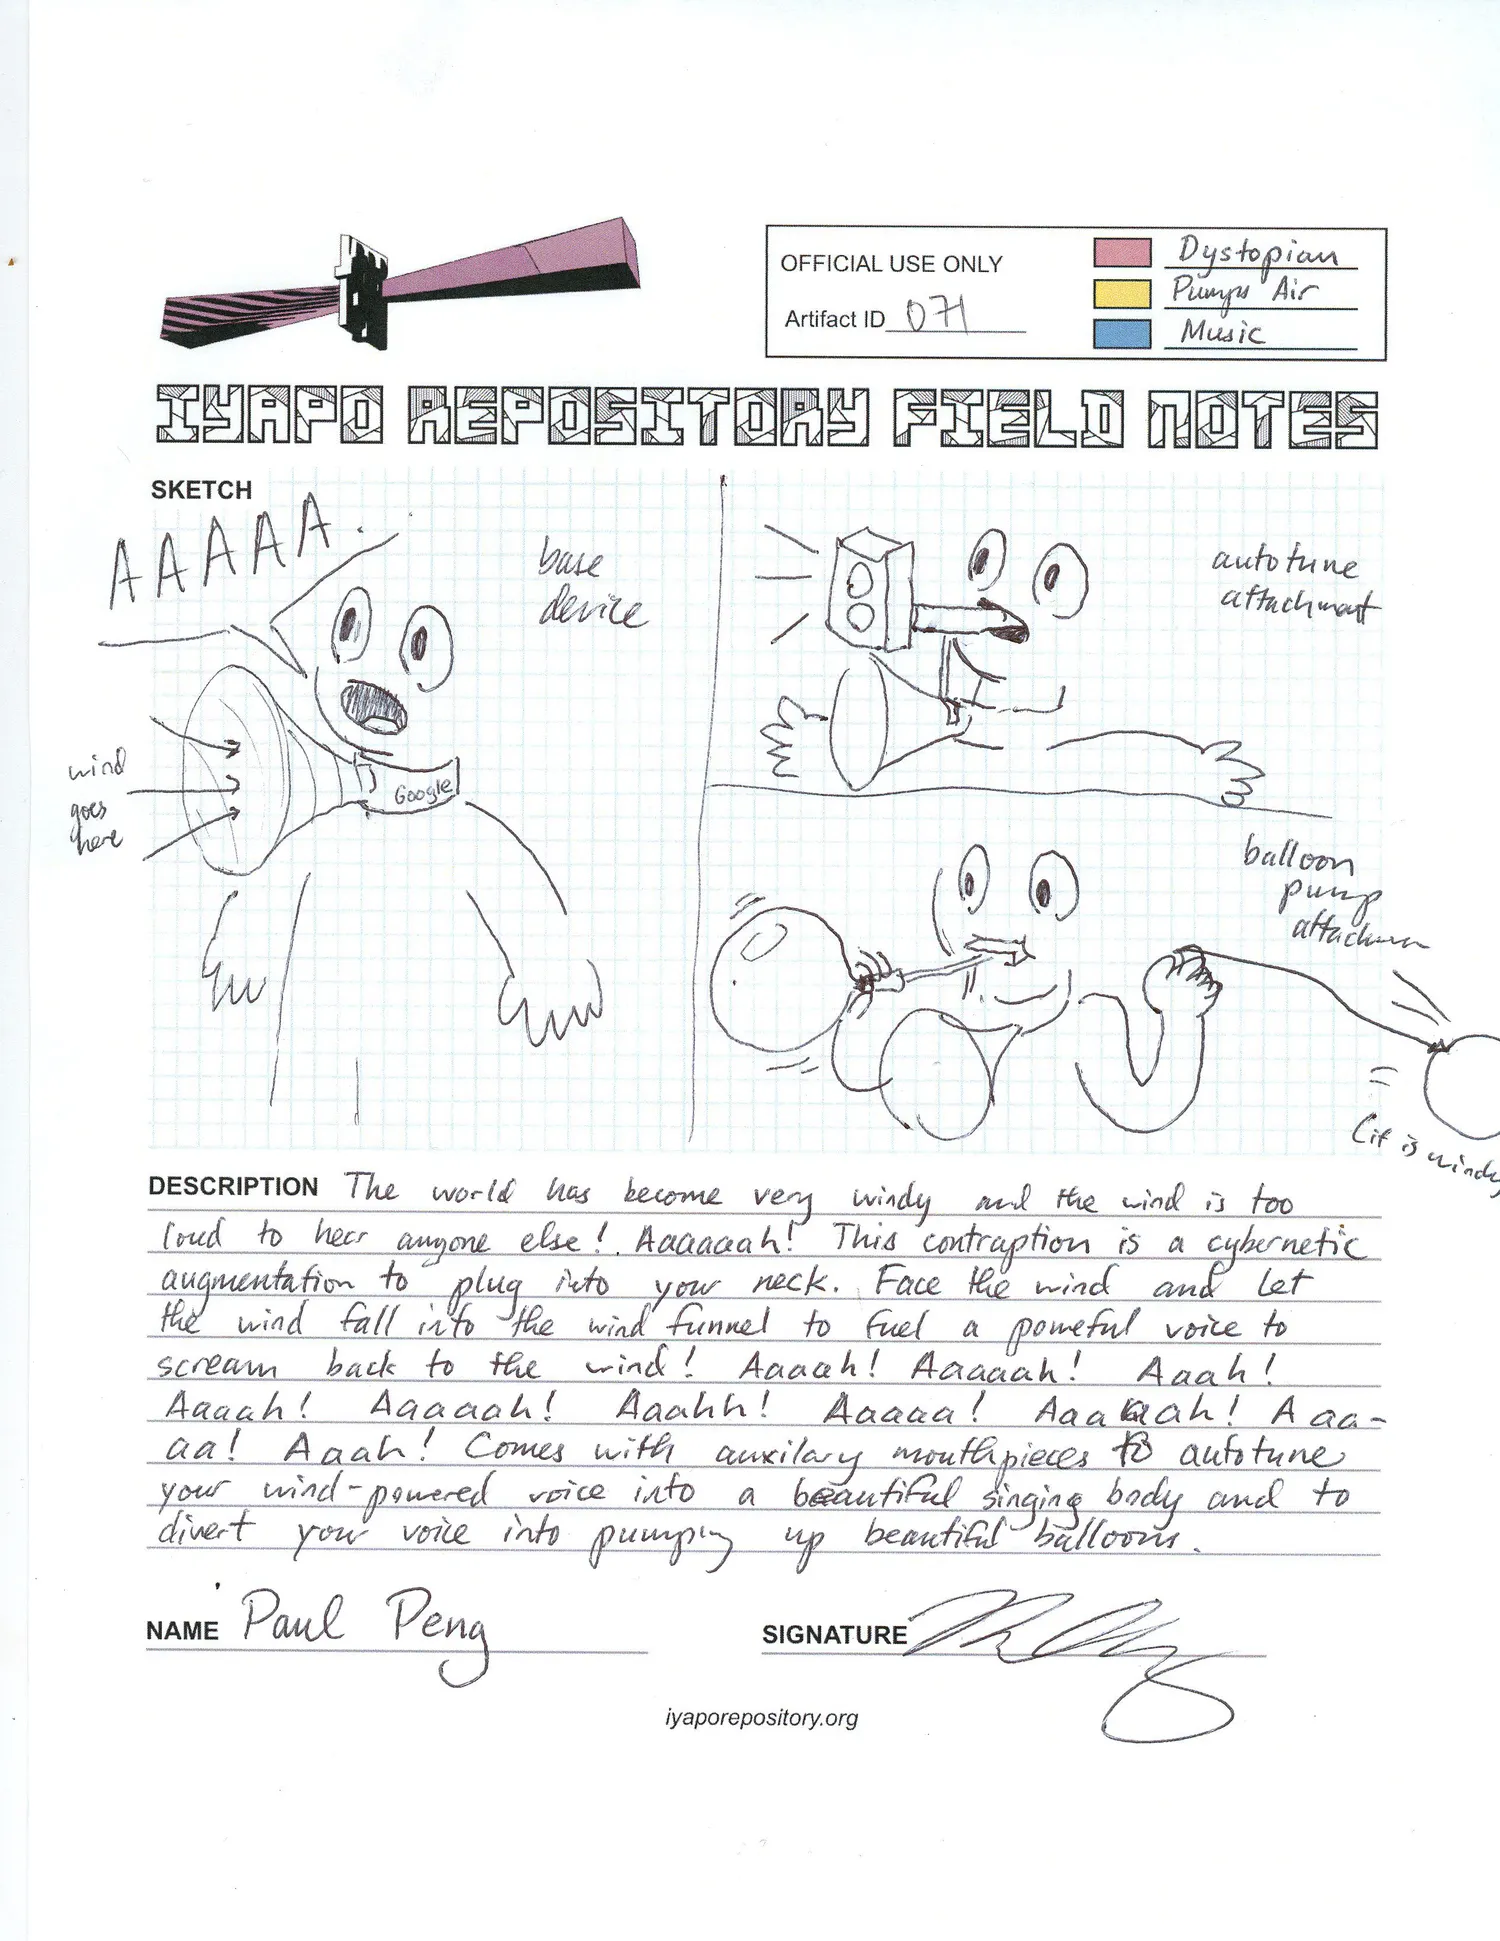 OFFICIAL USE ONLY
Artifact ID 071
Dystopian
Pumps Air
Music
IYAPO REPOSITORY FIELD NOTES
SKETCH
AAAAA
base
device
wind
goes
here
Google
autotune
attachment
balloon
pump
attachmen
(it is windy
DESCRIPTION The world has become very windy and the wind is too
loud to hear anyone else! Aaaaaah! This contraption is a cybernetic
augmentation to plug into your neck. Face the wind and let
the wind fall into the wind funnel to fuel a poweful voice to
scream back to the wind! Aaaah! Aaaaah! Aaah!
Aaaah! Aaaaah! Aaahh! Aaaaa! Aaaaah! Aaa-
aa! Aaah! Comes with auxilary mouthpieces to autotune
your wind-powered voice into a beautiful singing body and to
divert your voice into pumping up beautiful balloons.
NAME Paul Peng
SIGNATURE
iyaporepository.org